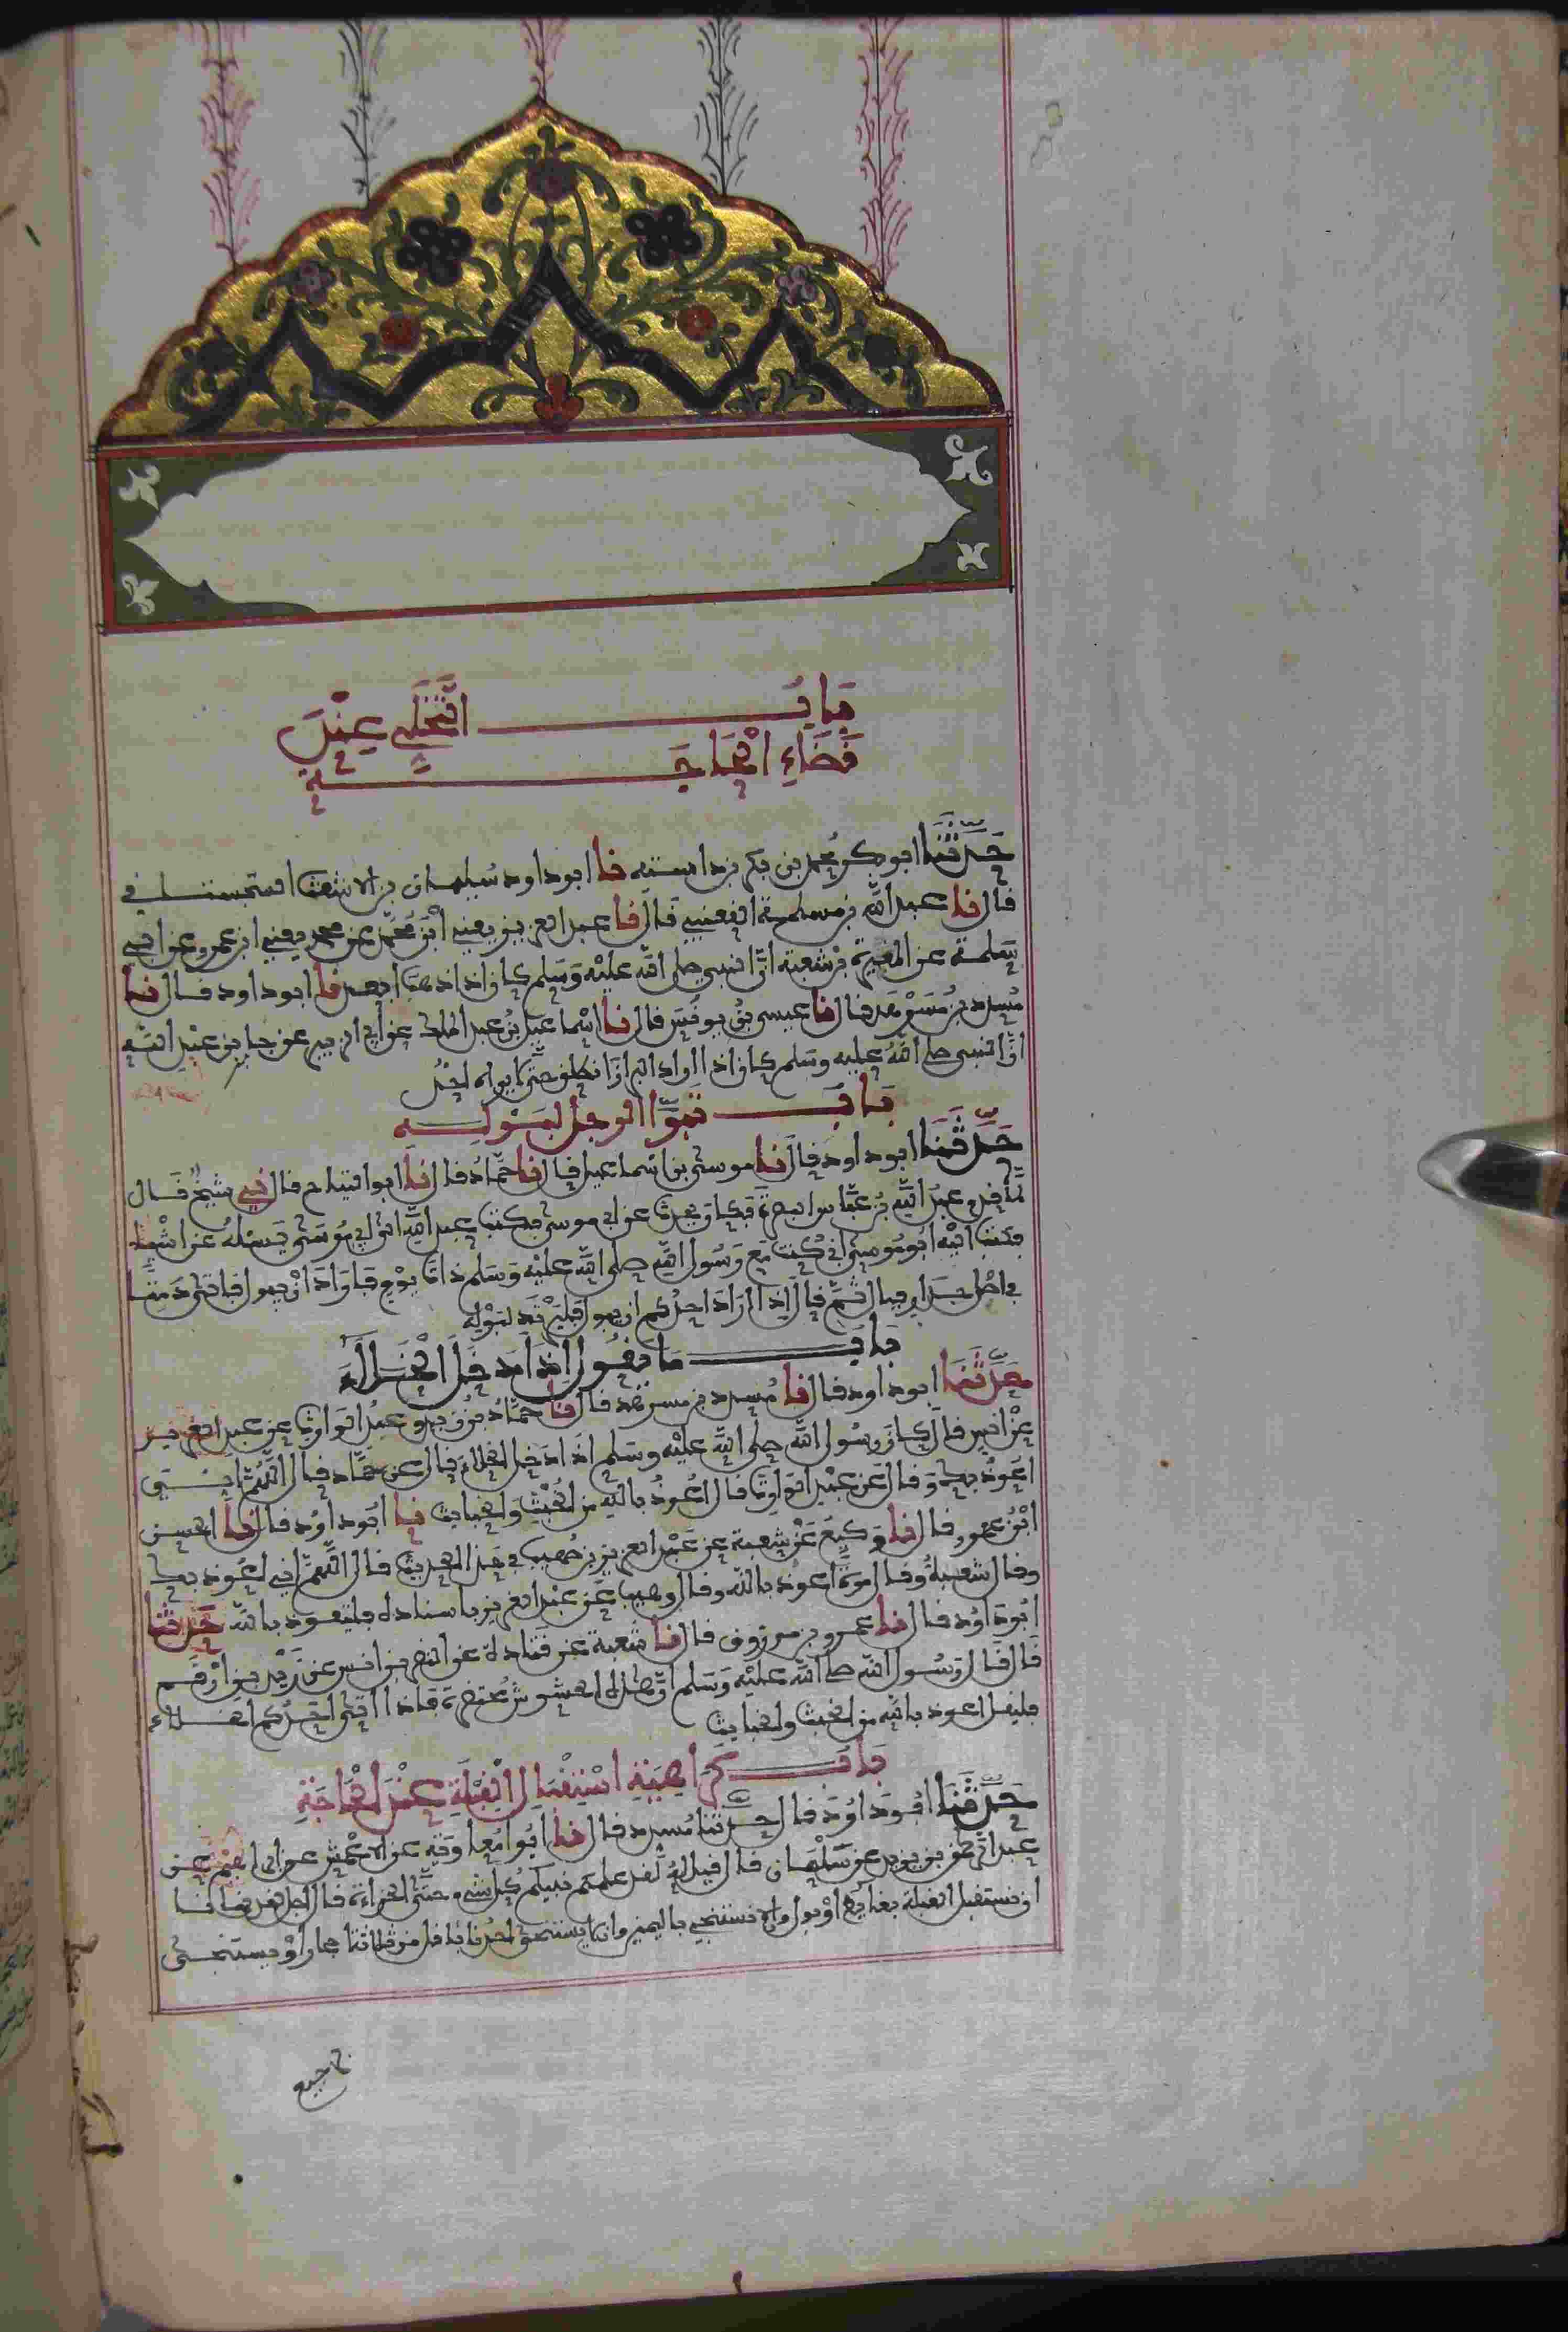 باب التخلي عند
قضاء الحاجة
حدثنا ابو بكر محمد بن بكر بن داسة نا ابو داود سليمان بن الاشعث السجستاني
قال نا عبد الله بن مسلمة القعنبي قال نا عبد العزيز يعني ابن محمد عن محمد يعني ابن عمرو عن ابي
سلمة عن المغيرة بن شعبة ان النبي صلى الله عليه وسلم كان اذا ذهب ابعد نا ابو داود قال نا
مسدد بن مسرهد قال نا عيسى بن يونس قال نا اسماعيل بن عبد الملك عن ابي الزبير عن جابر بن عبد الله
ان النبي صلى الله عليه وسلم كان اذا اراد البراز انطلق حتى لا يراه احد
باب تبوا الرجل لبوله
حدثنا ابو داود قال نا موسى بن اسماعيل قال نا حماد قال انا ابو التياح قال ني شيخ قال
لما قدم عبد الله بن عباس البصرة فكان يحدث عن ابي موسى فكتب عبد الله الى ابي موسى يسله عن اشيا
فكتب اليه ابو موسى اني كنت مع رسول الله صلى الله عليه وسلم ذات يوم فاراد ان يبول فاتى دمثا
في اصل جدار فبال ثم قال اذا اراد احدكم ان يبول فليرتد لبوله
باب ما يقول اذا دخل الخلاء
حدثنا ابو داود قال نا مسدد بن مسرهد قال نا حماد بن زيد وعبد الوارث عن عبد العزيز
عن انس قال كان رسول الله صلى الله عليه وسلم اذا دخل الخلاء قال عن حماد قال اللهم اني
اعوذ بك وقال عن عبد الوارث قال اعوذ بالله من الخبث والخبايث نا ابو داود قال نا الحسن
ابن عمرو قال نا وكيع عن شعبة عن عبد العزيز بن صهيب في هذا الحديث قال اللهم اني اعوذ بك
وقال شعبة وقال مرة اعوذ بالله وقال وهيب عن عبد العزيز باسناده فليتعوذ بالله حدثنا
ابو داود قال نا عمرو بن مرزوق قال نا شعبة عن قتادة عن النضر بن انس عن زيد بن ارقم
قال قال رسول الله صلى الله عليه وسلم ان هذه الحشوش محتضرة فاذا اتى احدكم الخلاء
فليقل اعوذ بالله من الخبث والخبايث
باب كراهية استقبال القبلة عند الحاجة
حدثنا ابو داود قال حدثنا مسدد قال نا ابو معاوية عن الاعمش عن ابراهيم عن
عبد الرحمن بن يزيد عن سلمان قال قيل له لقد علمكم نبيكم كل شيء حتى الخراءة قال اجل لقد نهانا
ان نستقبل القبلة بغايط او بول والا نستنجي باليمين وان لا يستنجي احدنا باقل من ثلاثة احجار او يستنجى